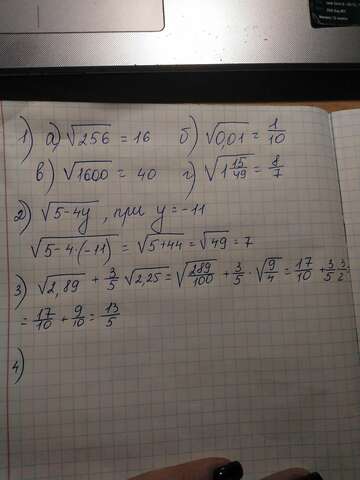 1) а) √256 = 16 б) √0,01 = 1/10
в) √1600 = 40 г) √1 15/49 = 8/7
2) √5-4y, при y = -11
√5-4·(-11) = √5+44 = √49 = 7
3) √2,89 + 3/5 √2,25 = √289/100 + 3/5 · √9/4 = 17/10 + 3/5 · 3/2
= 17/10 + 9/10 = 13/5
4)